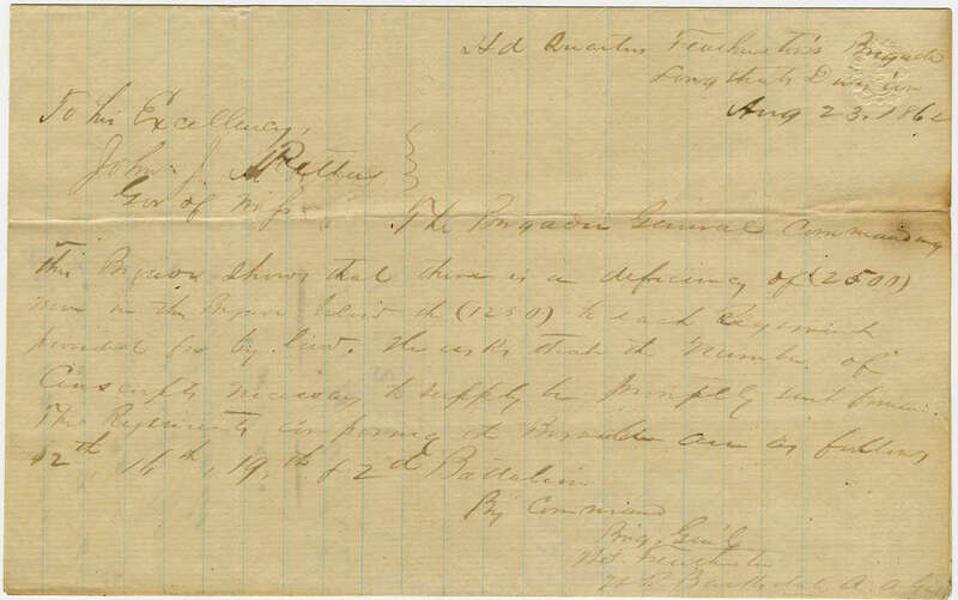 Hd Quarters Featherston's Brigade
Longstreets Division
Aug 23, 1862
To his Excellency,
John J. Pettus
Gov of Miss
The Brigadier General Commanding
this Brigade shows that there is a deficiency of (2500)
men in the Brigade below the (1250) to each Regiment
provided for by law. He asks that the number of
Conscripts necessary to supply be promptly sent
The Regiments composing the Brigade are as follows
12th, 16th, 19th & 2nd Battalion
By Command
Brig. Gen'l
W.S. Featherston
W. R. Barksdale A. A. Gen